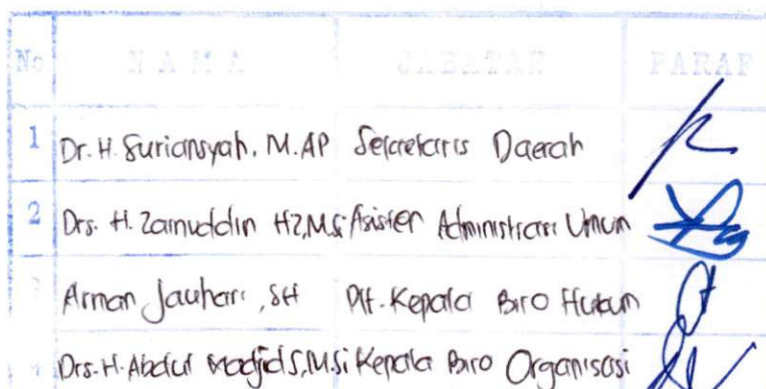 No N A M A JABATAN PARAF
1 Dr. H. Suriansyah, M.AP Sekretaris Daerah
2 Drs. H. Zainuddin HZ, M.Si Asisten Administrasi Umum
3 Arman Jauhari, SH Plt. Kepala Biro Hukum
Drs. H. Abdul Madjid S, M.Si Kepala Biro Organisasi